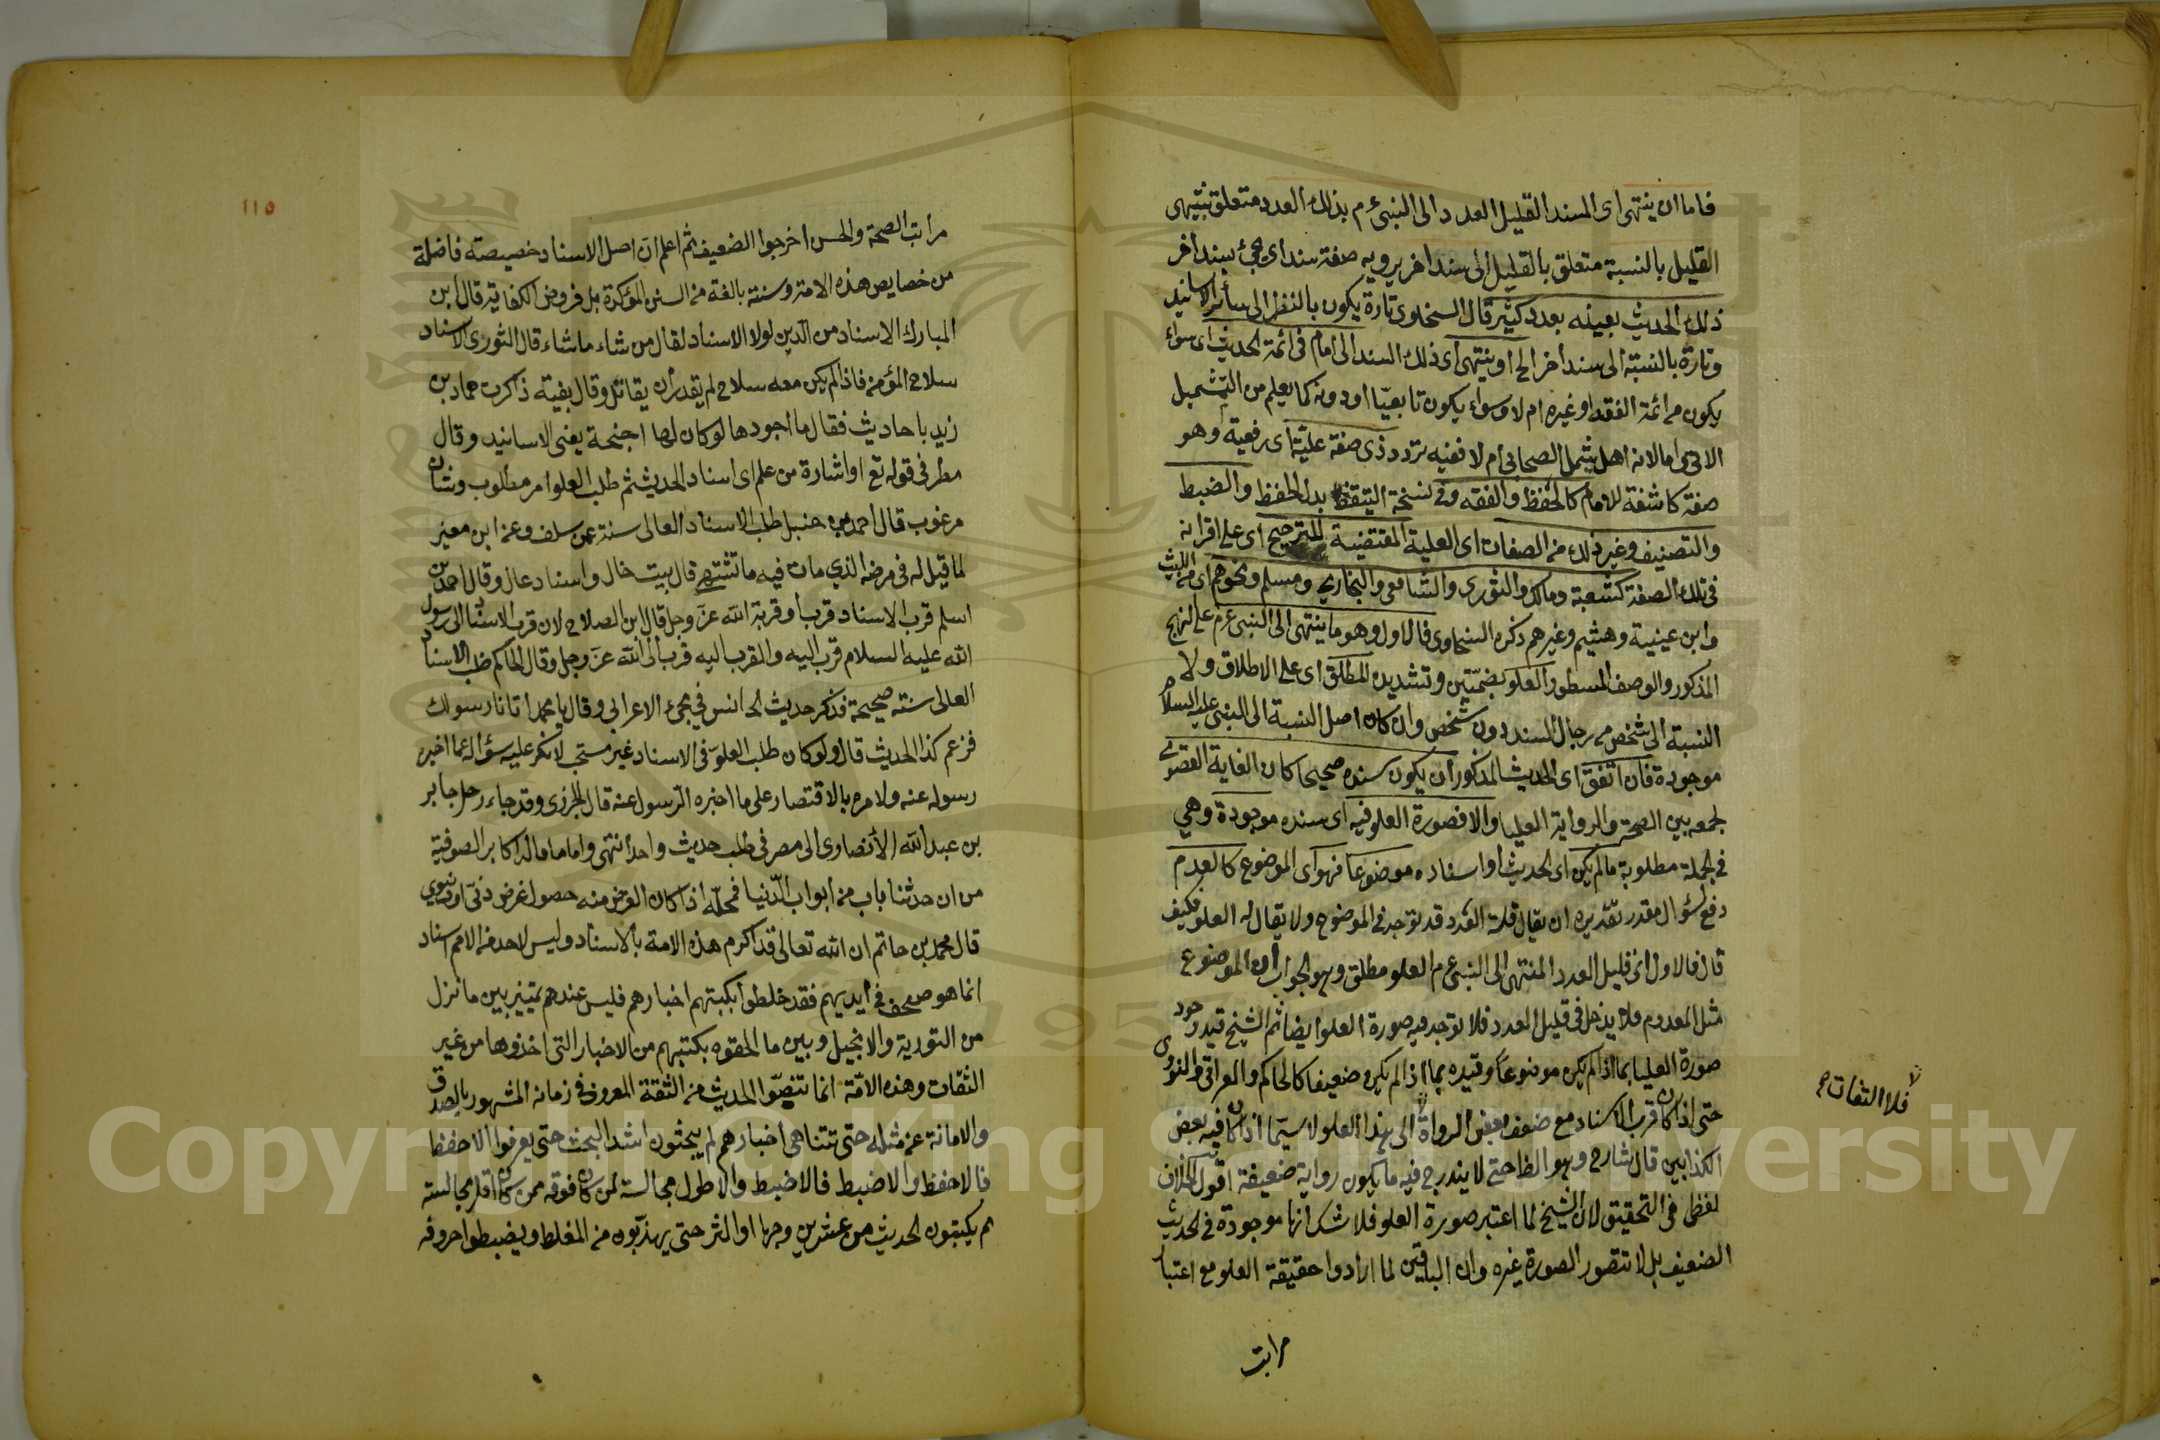 فاما ان ينتهى اى المسند القليل العدد الى النبى عم بذلك العدد متعلق بينتهى
القليل بالنسبة متعلق بالقليل الى سند اخر يرويه صفة سند اى يجئ بسند اخر
ذلك الحديث بعينه بعدد كثير قال السخاوى تارة يكون بالنظر الى سائر الاسانيد
وتارة بالنسبة الى سند اخر الخ او ينتهى اى ذلك السند الى امام فى ائمة الحديث اى سواء
يكون من ائمة الفقه او غيره ام لا وسواء يكون تابعيا او دونه كما يعلم من التمثيل
الاتى اما لانه اهل يشمل الصحابى ام لا ففيه تردد ذى صفة علية اى رفعية وهو
صفة كاشفة للامام كالحفظ والفقه وفى نسخة التيقظ بدل الحفظ والضبط
والتصنيف وغير ذلك من الصفات اى العلية المقتضية للترجيح اى على اقرانه
فى تلك الصفة كشعبة ومالك والثورى والشافعى والبخارى ومسلم ونحوهم اى من الليث
وابن عيينية وهشيم وغيرهم ذكره السخاوى فالاول وهو ما ينتهى الى النبى عم على النهج
المذكور والوصف المسطور العلو بضمتين وتشديده المطلق اى على الاطلاق ولا
النسبة الى شخص من رجال السند دون شخص وان كان اصل النسبة الى النبى عليه السلام
موجودة فان اتفق اى الحديث المذكور ان يكون سنده صحيحا كان الغاية القصوى
لجمعه بين الصحة والرواية العليا والا فصورة العلو فيه اى سنده موجودة وهي
فى الجملة مطلوبة ما لم يكن اى الحديث او اسناده موضوعا فهو اى الموضوع كالعدم
دفع لسؤال مقدر تقديره ان يقال قلة العدد قد توجد فى الموضوع ولا يقال له العلو فكيف
قال فالاول اى قليل العدد المنتهى الى النبى عم العلو مطلق وهو الجواب ان الموضوع
مثل المعدوم فلا يدخل فى قليل العدد فلا توجد فيه صورة العلو ايضا ثم الشيخ قيد وجود
صورة العليا بما اذا لم يكن موضوعا وقيده بما اذا لم يكن ضعيفا كالحاكم والعراقى والنووى
حتى اذا كان قرب الاسناد مع ضعف بعض الرواة الى بهذا العلو لا سيما اذا كان فيه بعض
الكذابين قال شارح وهو الظاهر حتى لا يندرج فيه ما يكون رواية ضعيفة اقول الخلاف
لفظى فى التحقيق لان الشيخ لما اعتبر صورة العلو فلا شك انها موجودة فى الحديث
الضعيف بل لا تتصور الصورة غيره وان الباقين لما ارادوا حقيقة العلو مع اعتبار
مراتب
فلا التفات
١١٥
مراتب الصحة والحسن اخرجوا الضعيف ثم اعلم ان اصل الاسناد خصيصة فاضلة
من خصايص هذه الامة وسنته بالغة من السنن المؤكدة بل فروض الكفاية قال ابن
المبارك الاسناد من الدين لولا الاسناد لقال من شاء ما شاء قال الثورى الاسناد
سلاح المؤمن فاذا لم يكن معه سلاح لم يقدر ان يقاتل وقال بقية ذاكرت حماد بن
زيد باحاديث فقال ما اجودها لو كان لها اجنحة يعنى الاسانيد وقال
مطر فى قوله تع او اشارة من علم اى اسناد الحديث ثم طلب العلو امر مطلوب وشان
مرغوب قال احمد بن حنبل طلب الاسناد العالى سنة عمن سلف وعن ابن معين
لما قيل له فى مرضه الذي مات فيه ما تشتهى قال بيت خال واسناد عال وقال احمد بن
اسلم قرب الاسناد قرب او قربة الله عز وجل قال ابن الصلاح لان قرب الاسناد الى رسول
الله عليه السلام قرب اليه والقرب اليه قرب الى الله عز وجل وقال الحاكم طلب الاسناد
العلى سنته صحيحة فذكر حديث انس في مجئ الاعرابي وقال يا محمد اتانا رسولك
فزعم كذا الحديث قال ولو كان طلب العلو فى الاسناد غير مستحب لانكر عليه سؤاله عما اخبره
رسوله عنه ولامره بالاقتصار على ما اخبره الرسول عنه قال الجزرى وقد جاء رحل جابر
بن عبد الله الأنصارى الى مصر فى طلب حديث واحد انتهى واما ما قاله اكابر الصوفية
من ان حدثنا باب من ابواب الدنيا فمحله اذا كان الغرض منه حصول غرض دنى او دنيوي
قال محمد بن حاتم ان الله تعالى قد اكرم هذه الامة بالاسناد وليس لاحد من الامم اسناد
انما هو صحف فى ايديهم فقد خلطوا بكتبهم اخبارهم فليس عندهم تمييز بين ما نزل
من التورية والانجيل وبين ما الحقوه بكتبهم من الاخبار التى اخذوها من غير
الثقات وهذه الامة انما تنصّو الحديث من الثقة المعروف فى زمانه المشهور بالصدق
والامانة عن مثله حتى تتناهى اخبارهم ثم يبحثون اشد البحث حتى يعرفوا الاحفظ
فالاحفظ والاضبط فالاضبط والاطول مجالسة لمن كان فوقه ممن كان اقل مجالسته
ثم يكتبون الحديث من عشرين وجها او اكثر حتى يهذبون من الغلط ويضبطوا حروفه
Copyright © King Saud University